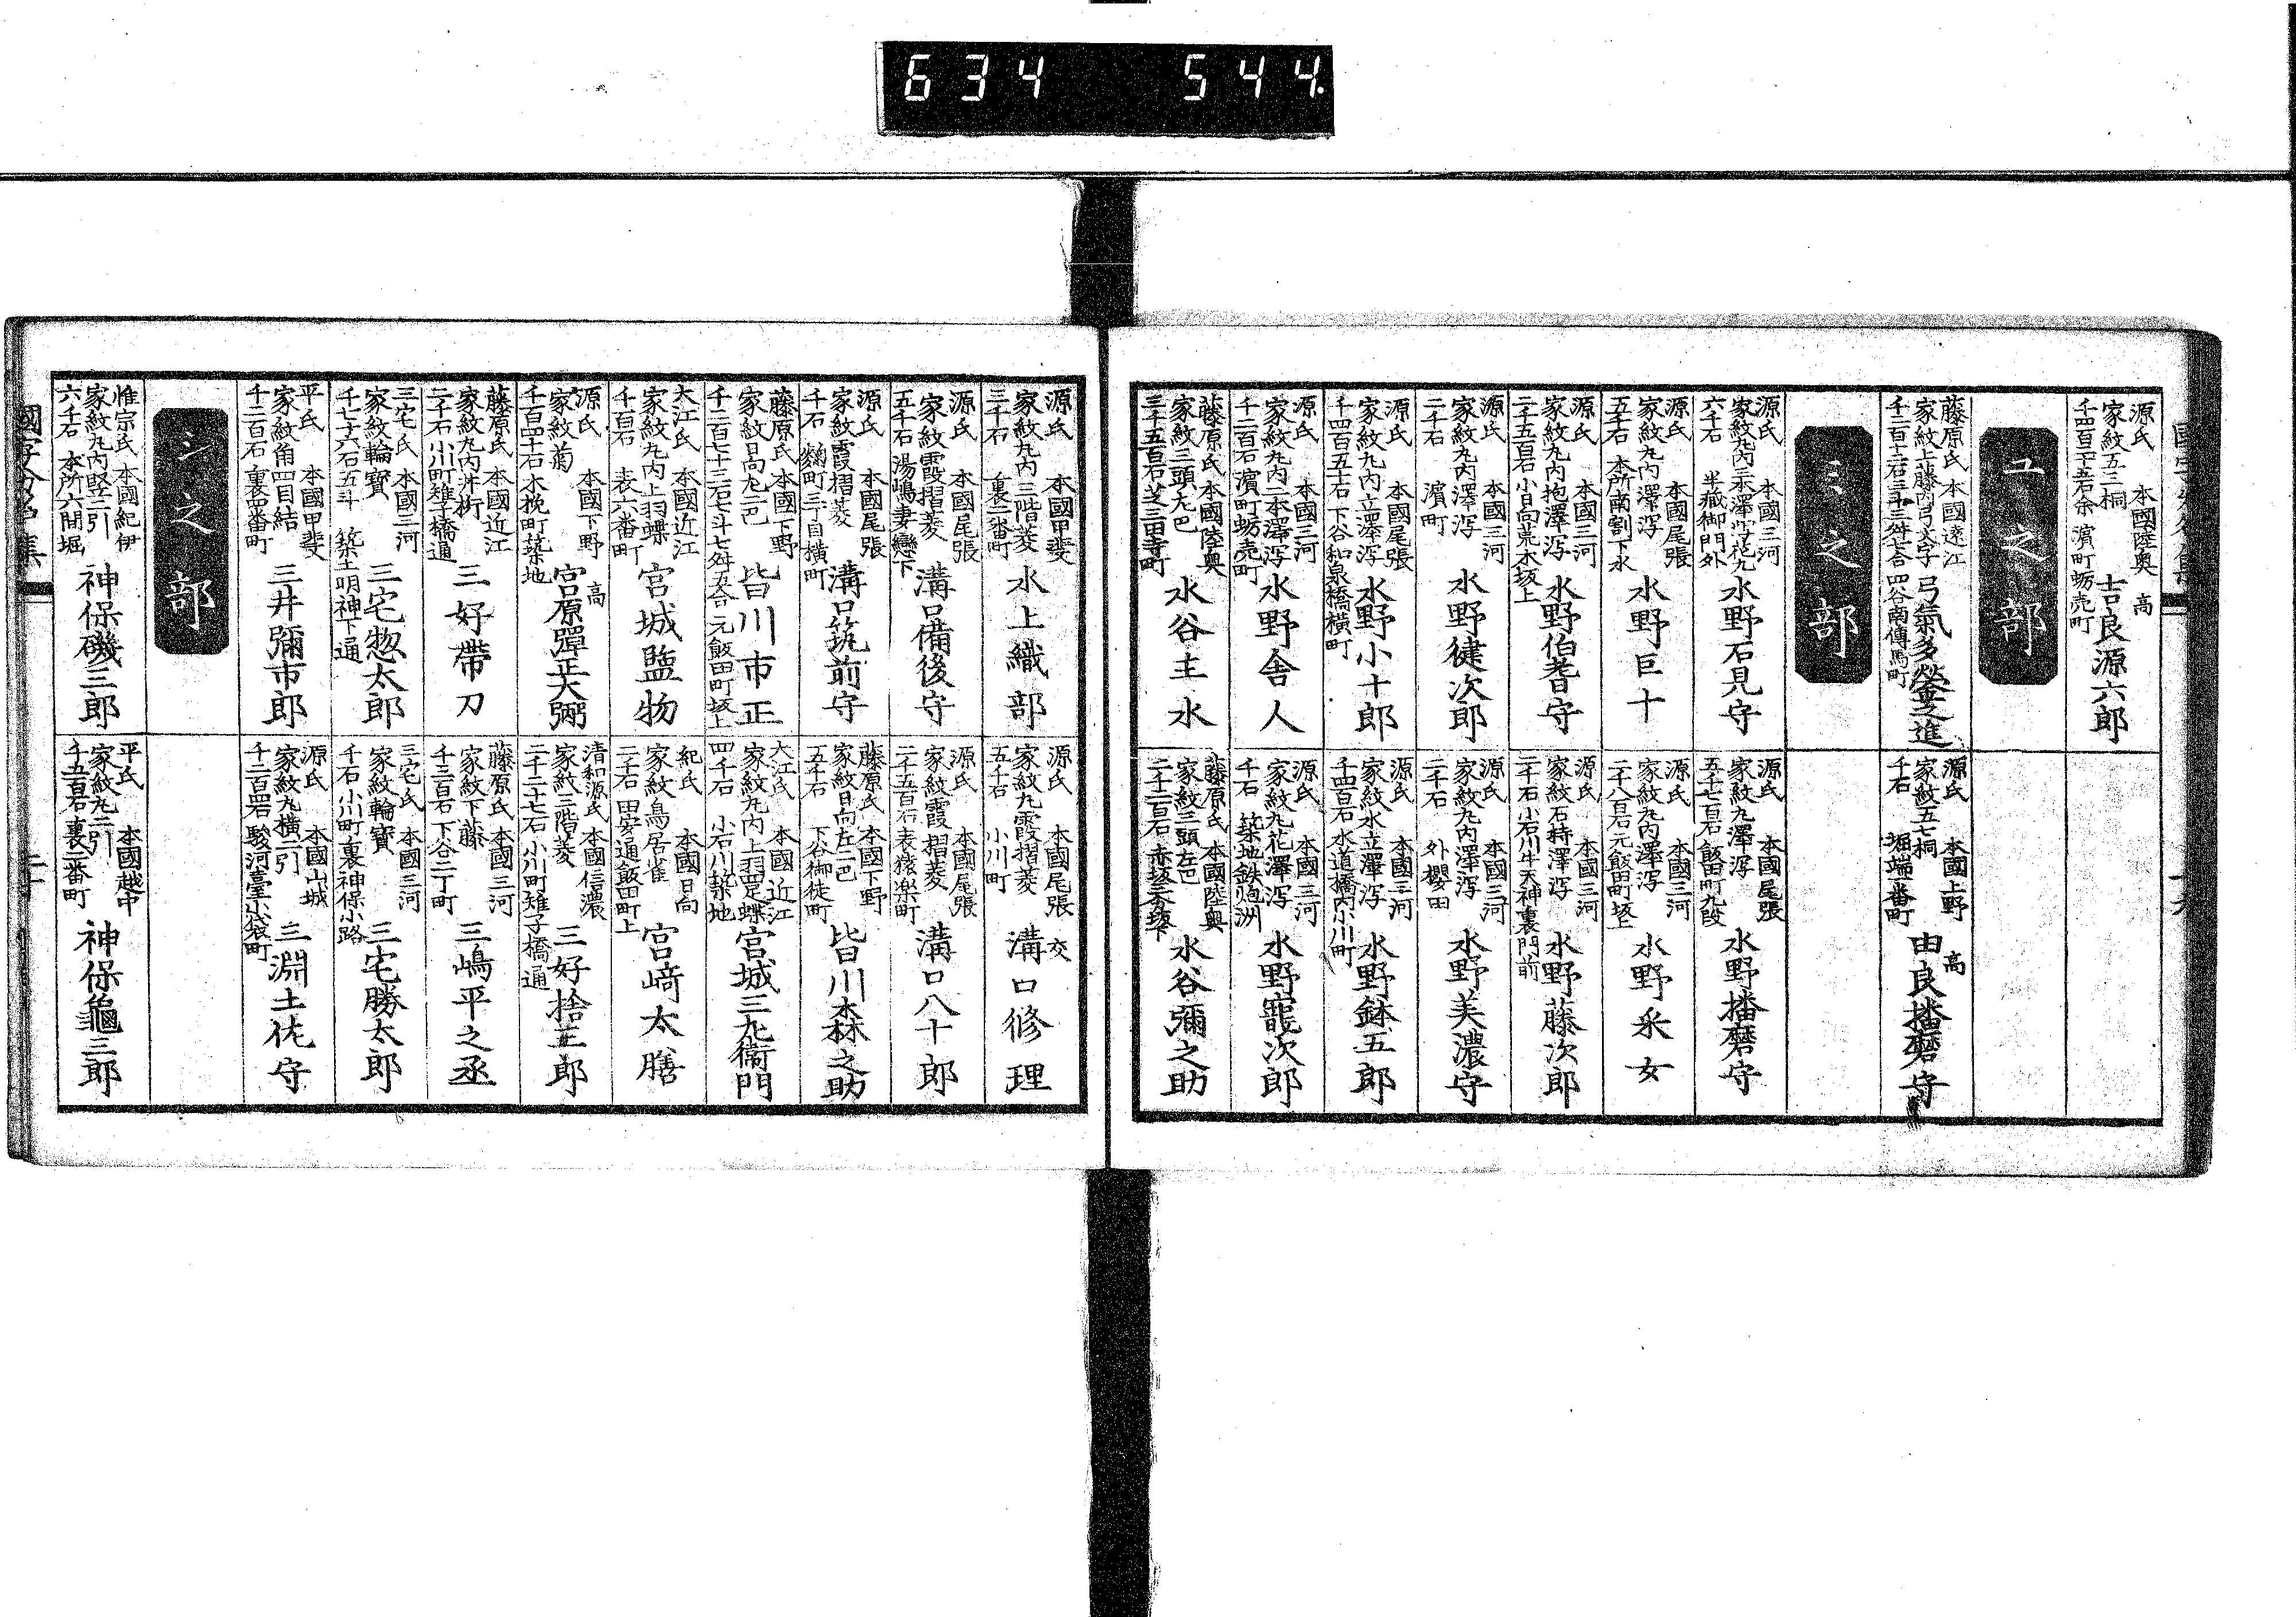 634 544
源氏 本國陸奥 高
家紋五三桐
吉良源六郎
ユ之部
藤原氏 本國遠江
家紋上藤内弓文字
弓氣多
源氏 本國上野 高
家紋五七桐
千石 堀端一番町
由良播磨守
ミ之部
源氏 本國三河
六千石 半藏御門外
水野石見守
源氏 本國尾張
家紋丸澤瀉
五千七百石 飯田町九段
水野播磨守
源氏 本國尾張
家紋丸内澤瀉
五千石 本所南割下水
水野巨十
源氏 本國三河
家紋丸内澤瀉
二千八百石 元飯田町坂上
水野采女
源氏 本國三河
家紋丸内抱澤瀉
二千五百石 小日向荒木坂上
水野伯耆守
源氏 本國三河
家紋石持澤瀉
二千石 小石川牛天神裏門前
水野藤次郎
源氏 本國三河
家紋丸内澤瀉
二千石 濱町
水野健次郎
源氏 本國三河
家紋丸内澤瀉
二千石 外櫻田
水野美濃守
源氏 本國尾張
家紋丸内立澤瀉
千四百五十石 下谷和泉橋横町
水野小十郎
源氏 本國三河
家紋水立澤瀉
千四百石 水道橋内小川町
水野鉢五郎
源氏 本國三河
家紋丸内二本澤瀉
千二百石 濱町蛎売町
水野舎人
源氏 本國三河
家紋丸花澤瀉
千石 築地鉄炮洲
水野寵次郎
藤原氏 本國陸奥
家紋三頭左巴
三千五百石 芝三田寺町
水谷主水
藤原氏 本國陸奥
家紋三頭左巴
水谷彌之助
源氏 本國甲斐
家紋丸内三階菱
三千石 裏二番町
水上織部
源氏 本國尾張 交
家紋丸霞摺菱
五千石 小川町
溝口修理
源氏 本國尾張
家紋霞摺菱
五千石 湯嶋妻戀下
溝口備後守
源氏 本國尾張
家紋霞摺菱
二千五百石 表猿楽町
溝口八十郎
源氏 本國尾張
家紋霞摺菱
千石 麹町三丁目横町
溝口筑前守
藤原氏 本國下野
家紋日向左二巴
五千石 下谷御徒町
皆川森之助
藤原氏 本國下野
千二百七十三石七斗七舛五合 元飯田町坂上
皆川市正
大江氏 本國近江
四千石 小石川築地
宮城三左衛門
大江氏 本國近江
家紋丸内上羽蝶
千百石 表六番町
宮城監物
紀氏 本國日向
家紋鳥居雀
二千石 田安通飯田町上
宮﨑太膳
源氏 本國下野 高
家紋菊
千百四十石 木挽町築地
宮原彈正大弼
清和源氏 本國信濃
家紋三階菱
二千二十七石 小川町雉子橋通
三好捨三郎
藤原氏 本國近江
家紋丸内井桁
二千石 小川町雉子橋通
三好帶刀
藤原氏 本國三河
家紋下藤
千三百石 下谷二丁町
三嶋平之丞
三宅氏 本國三河
家紋輪寶
千七十六石五斗 築土明神下通
三宅惣太郎
三宅氏 本國三河
家紋輪寶
千石 小川町裏神保小路
三宅勝太郎
平氏 本國甲斐
家紋角四目結
千二百石 裏四番町
三井彌市郎
源氏 本國山城
家紋丸横二引
駿河臺小袋町
三淵土佐守
シ之部
惟宗氏 本國紀伊
家紋丸内竪二引
六千石 本所六間堀
神保磯三郎
平氏 本國越中
家紋丸二引
千五百石 裏二番町
神保龜三郎